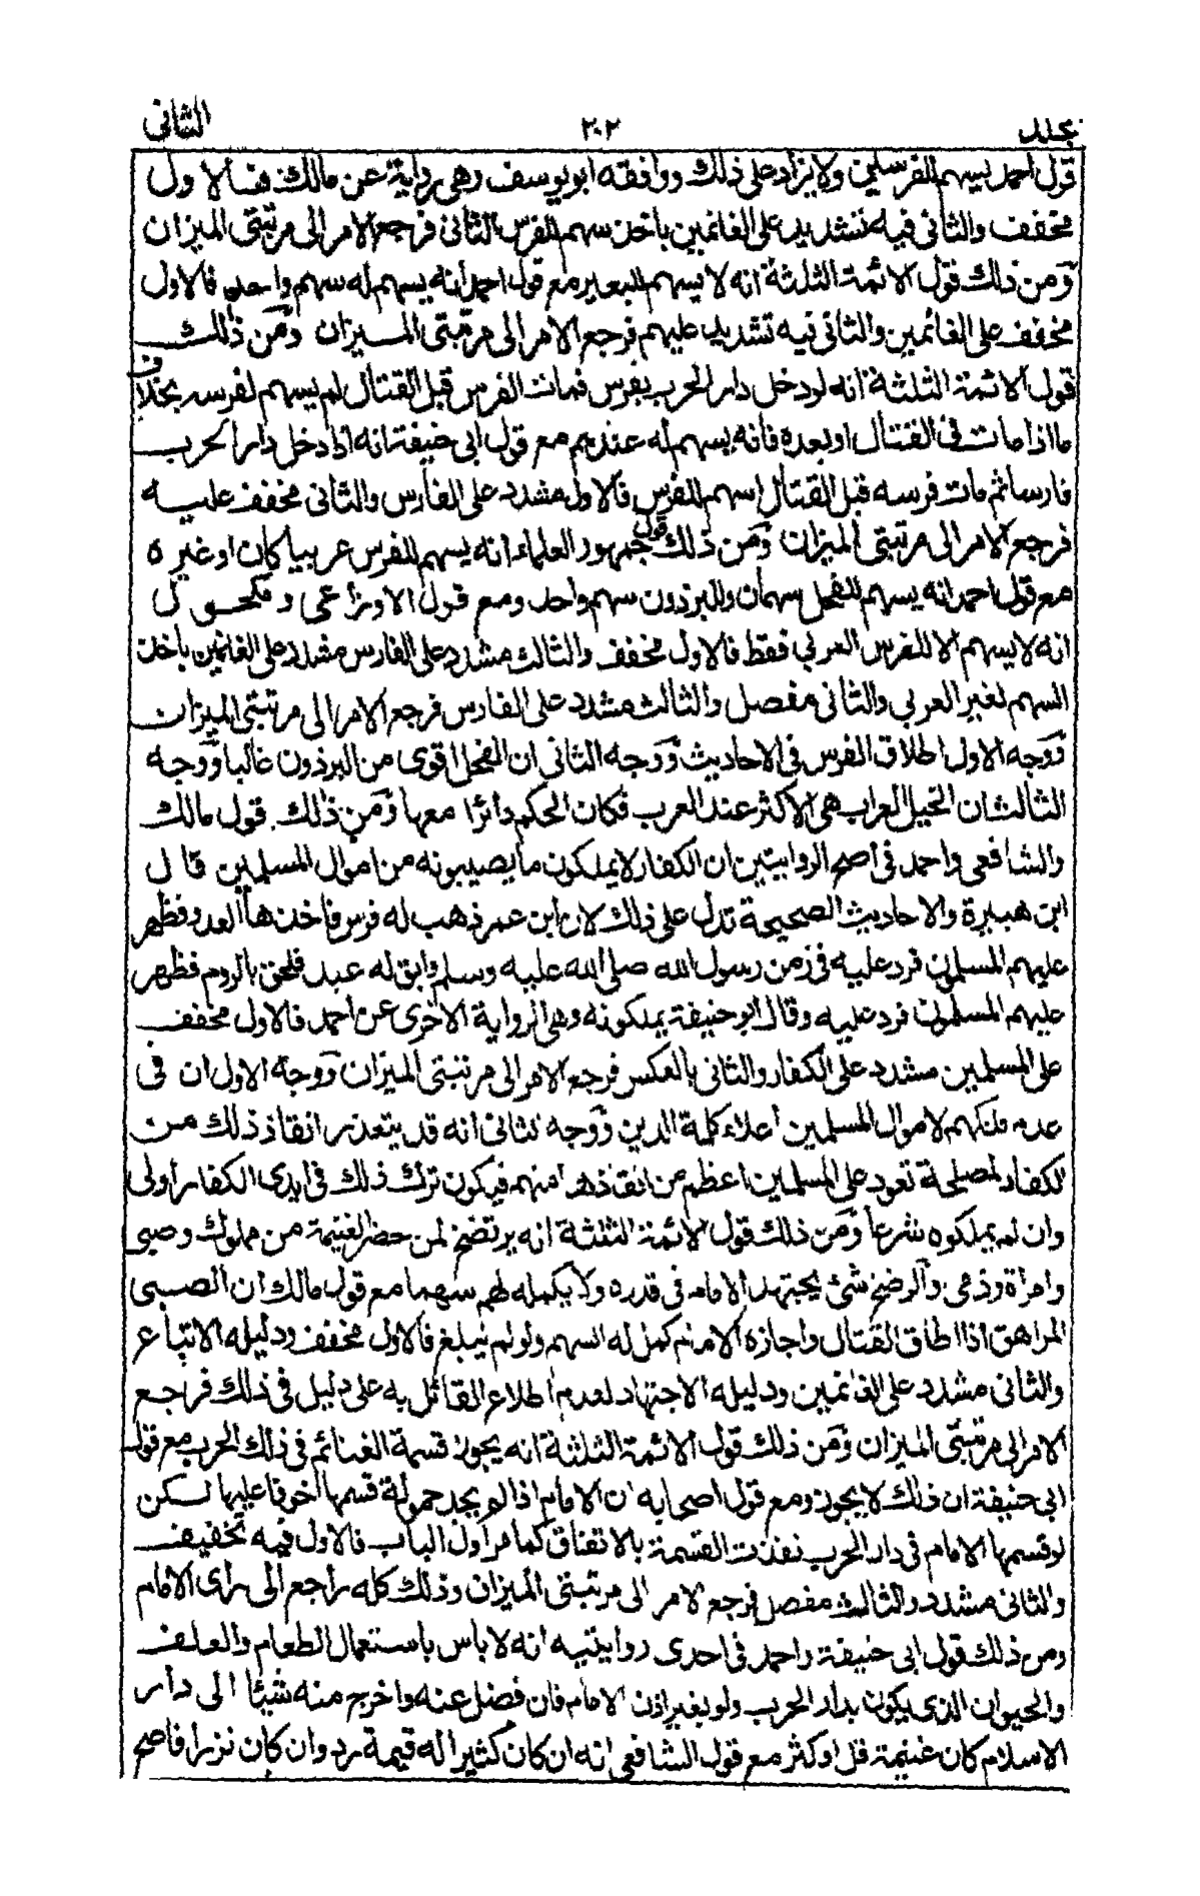 مجلد ٢٠٢ الثانى
قول احمد يسهم للفرسين ولا يزاد على ذلك ووافقه ابو يوسف وهى رواية عن مالك فالاول
مخفف والثانى فيه تشديد على الغانمين باخذ سهم الفرس الثانى فرجع الامر الى مرتبتى الميزان
ومن ذلك قول الائمة الثلثة انه لا يسهم للبعير مع قول احمد انه يسهم له سهم واحد فالاول
مخفف على الغانمين والثانى فيه تشديد عليهم فرجع الامر الى مرتبتى الميزان ومن ذلك
قول الائمة الثلثة انه لو دخل دار الحرب بفرس فمات الفرس قبل القتال لم يسهم لفرسه بخلاف
ما اذا مات فى القتال او بعده فانه يسهم له عندهم مع قول ابى حنيفة انه اذا دخل دار الحرب
فارسا ثم مات فرسه قبل القتال اسهم للفرس فالاول مشدد على الفارس والثانى مخفف عليه
فرجع الامر الى مرتبتى الميزان ومن ذلك قول جمهور العلماء انه يسهم للفرس عربيا كان او غيره
مع قول احمد انه يسهم للفحل سهمان وللبرذون سهم واحد ومع قول الاوزاعى ومكحول
انه لا يسهم الا للفرس العربى فقط فالاول مخفف والثالث مشدد على الفارس مشدد على الغانمين باخذ
السهم لغير العربى والثانى مفصل والثالث مشدد على الفارس فرجع الامر الى مرتبتى الميزان
ووجه الاول اطلاق الفرس فى الاحاديث ووجه الثانى ان الفحل اقوى من البرذون غالبا ووجه
الثالث ان الخيل العراب هى الاكثر عند العرب فكان الحكم دائرا معها ومن ذلك قول مالك
والشافعى واحمد فى اصح الروايتين ان الكفار لا يملكون ما يصيبونه من اموال المسلمين قال
ابن هبيرة والاحاديث الصحيحة تدل على ذلك لان ابن عمر ذهب له فرس فاخذها العدو فظهر
عليهم المسلمون فرد عليه فى زمن رسول الله صلى الله عليه وسلم وابق له عبد فلحق بالروم فظهر
عليهم المسلمون فرد عليه وقال ابو حنيفة يملكونه وهى الرواية الاخرى عن احمد فالاول مخفف
على المسلمين مشدد على الكفار والثانى بالعكس فرجع الامر الى مرتبتى الميزان ووجه الاول ان فى
عدم ملكهم لاموال المسلمين اعلاء كلمة الدين ووجه الثانى انه قد يتعذر انقاذ ذلك من
الكفار لمصلحة تعود على المسلمين اعظم من انقاذها منهم فيكون ترك ذلك فى ايدى الكفار اولى
وان لم يملكوه شرعا ومن ذلك قول الائمة الثلثة انه يرتضخ لمن حضر الغنيمة من مملوك وصبى
وامراة وذمى والرضخ شئ يجتهد الامام فى قدره ولا يكمله لهم سهما مع قول مالك ان الصبى
المراهق اذا اطاق القتال واجازه الامام كمل له السهم ولو لم يبلغ فالاول مخفف ودليله الاتباع
والثانى مشدد على الغانمين ودليله الاجتهاد لعدم اطلاع القائل به على دليل فى ذلك فرجع
الامر الى مرتبتى الميزان ومن ذلك قول الائمة الثلثة انه يجوز قسمة الغنائم فى ذلك الحرب مع قول
ابى حنيفة ان ذلك لا يجوز ومع قول اصحابه ان الامام اذا لم يجد حمولة قسمها خوفا عليها لكن
لو قسمها الامام فى دار الحرب نفذت القسمة بالاتفاق كما مر اول الباب فالاول فيه تخفيف
والثانى مشدد والثالث مفصل فرجع الامر الى مرتبتى الميزان وذلك كله راجع الى راى الامام
ومن ذلك قول ابى حنيفة واحمد فى احدى روايتيه انه لا باس باستعمال الطعام والعلف
والحيوان الذى يكون بدار الحرب ولو بغير اذن الامام فان فضل عنه واخرج منه شيئا الى دار
الاسلام كان غنيمة قل او كثر مع قول الشافعى انه ان كان كثيرا له قيمة رد وان كان نزرا فاصح